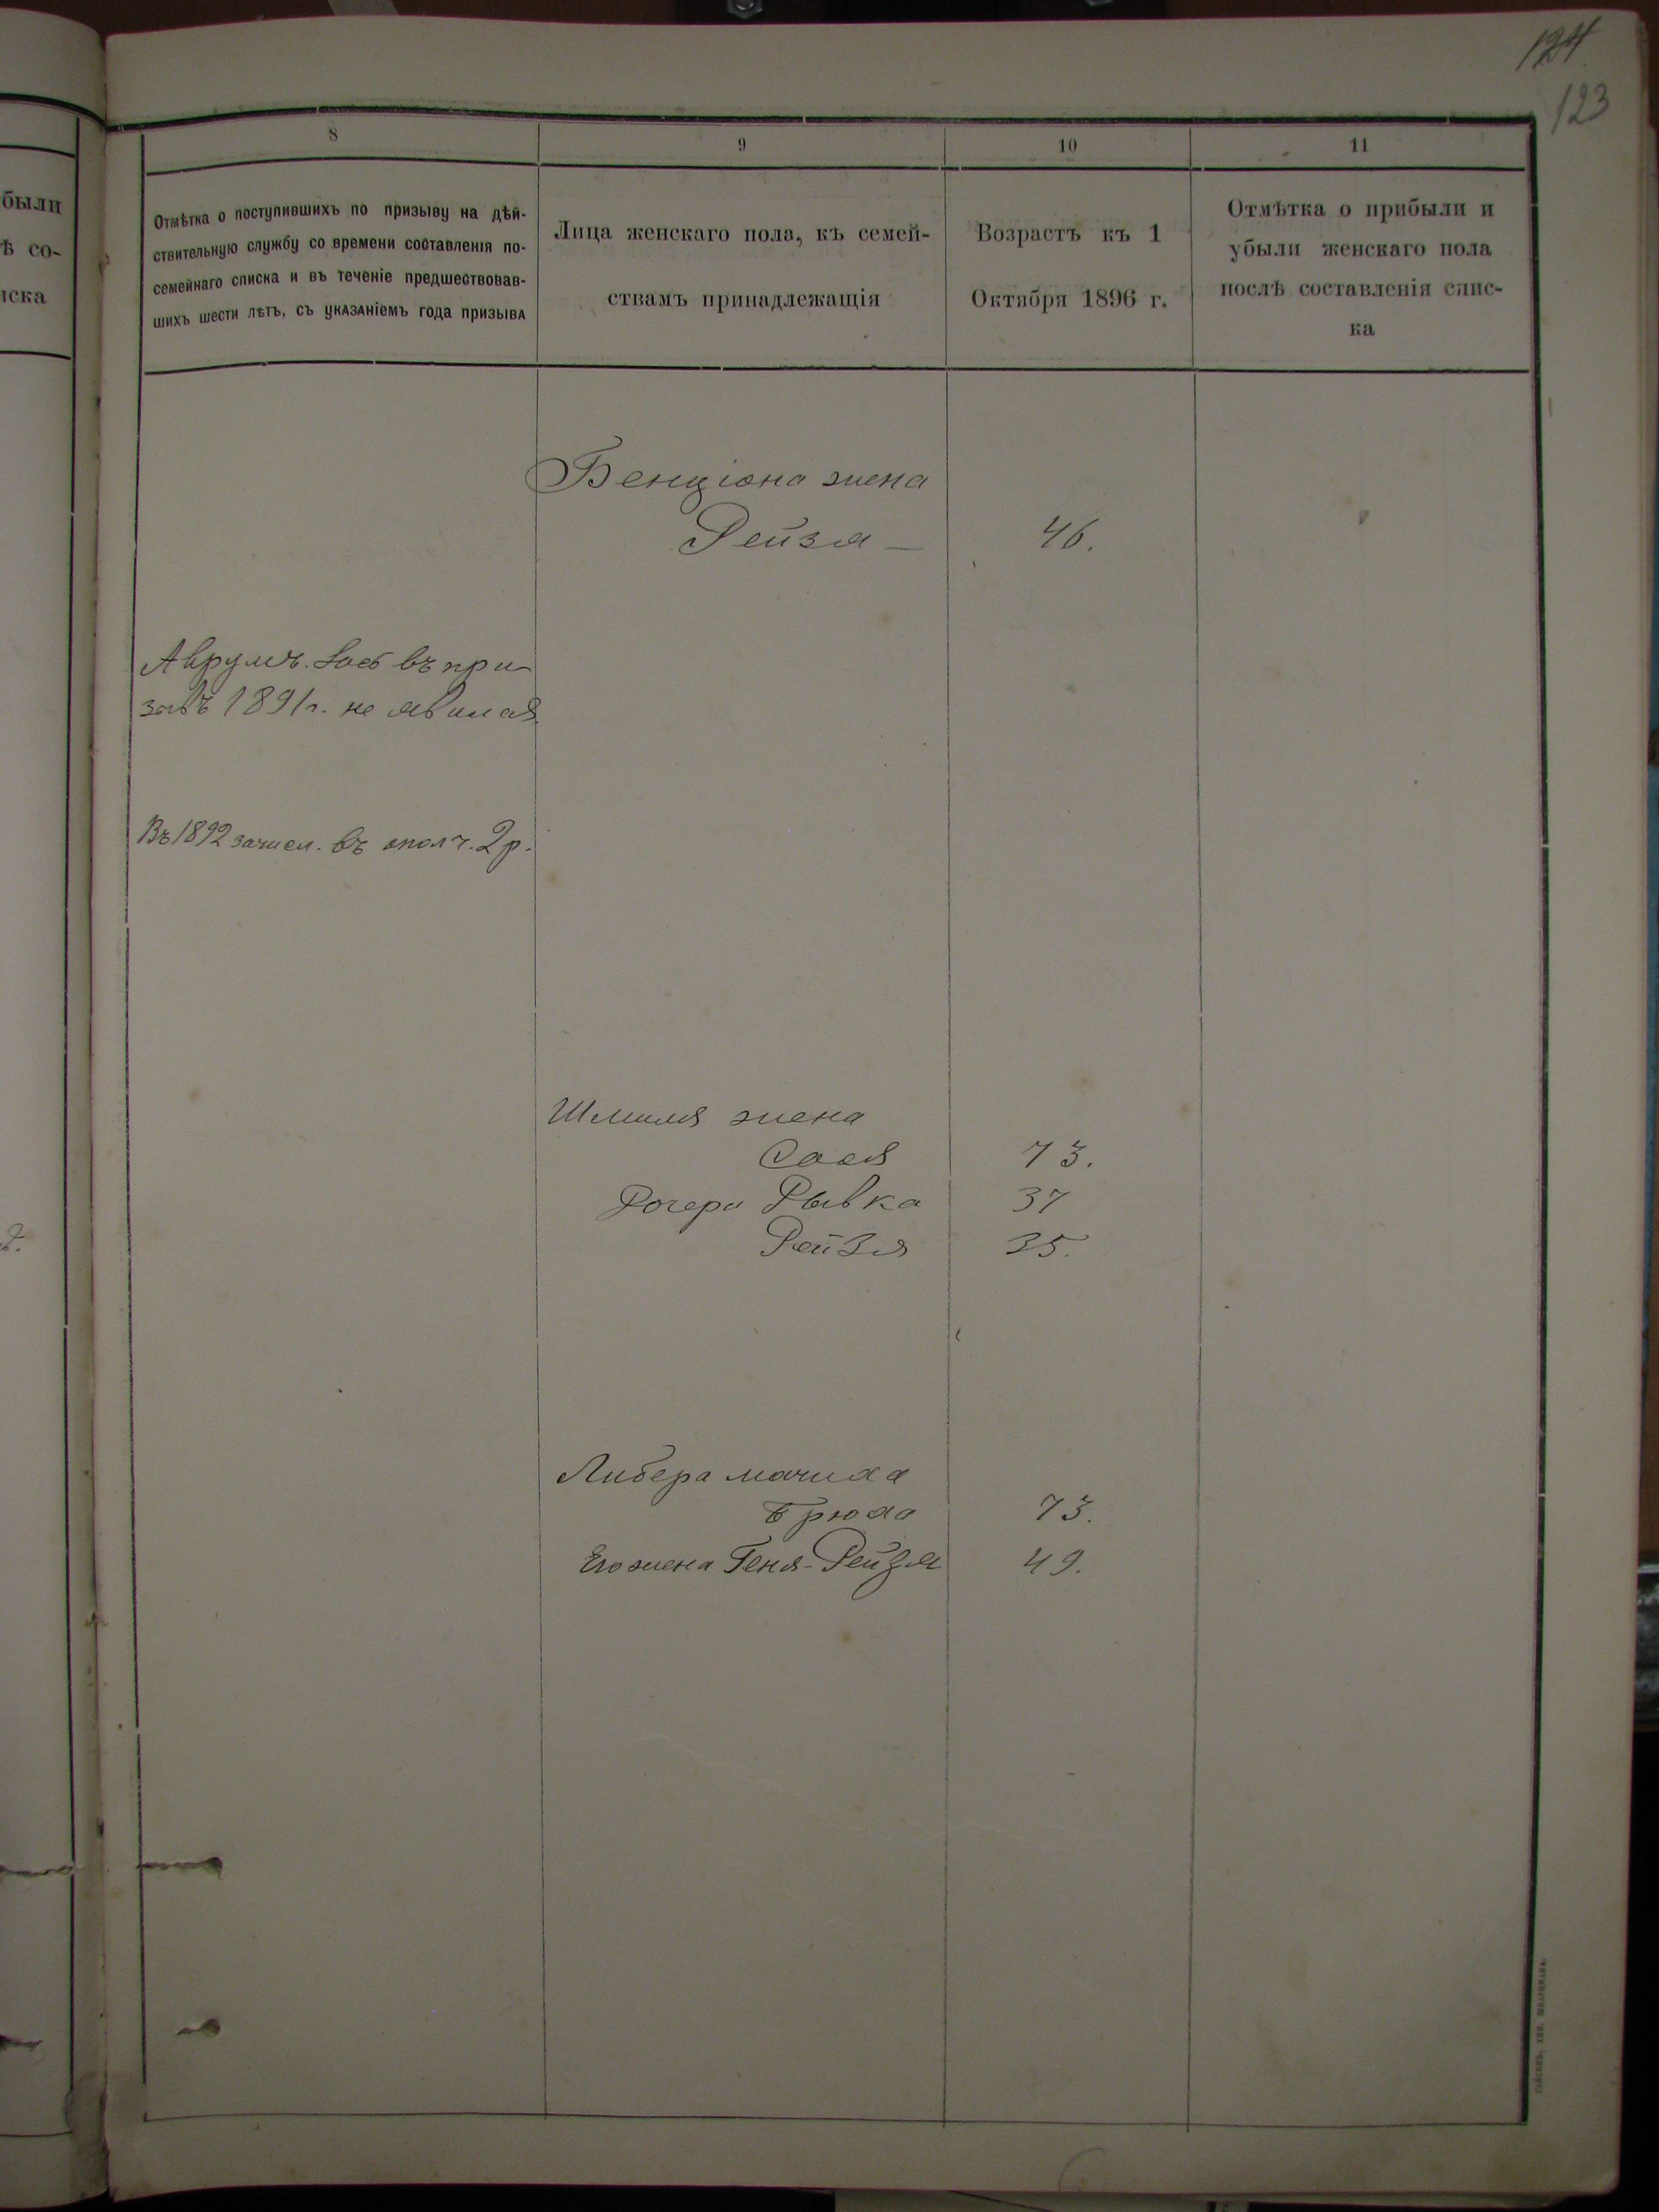 124
123
были
ѣ со-
иска
8
9
10
11
Отмѣтка о поступившихъ по призыву на дѣй-
ствительную службу со времени составленія по-
семейнаго списка и въ теченіе предшествовав-
шихъ шести лѣтъ, съ указаніемъ года призыва
Лица женскаго пола, къ семей-
ствамъ принадлежащія
Возрастъ къ 1
Октября 1896 г.
Отмѣтка о прибыли и
убыли женскаго пола
послѣ составленія спис-
ка
Бенціона жена
Рейзя — 46.
Аврумъ. въ при
зывъ 1891 г. не явился
Въ 1892 зачисл. въ ополч. 2 р.
Шмиля жена
Сося 73.
Дочери Рывка 37
Рейзя 35.
Либера мачиха
Брюха 73.
Его жена Геня-Рейзя 49.